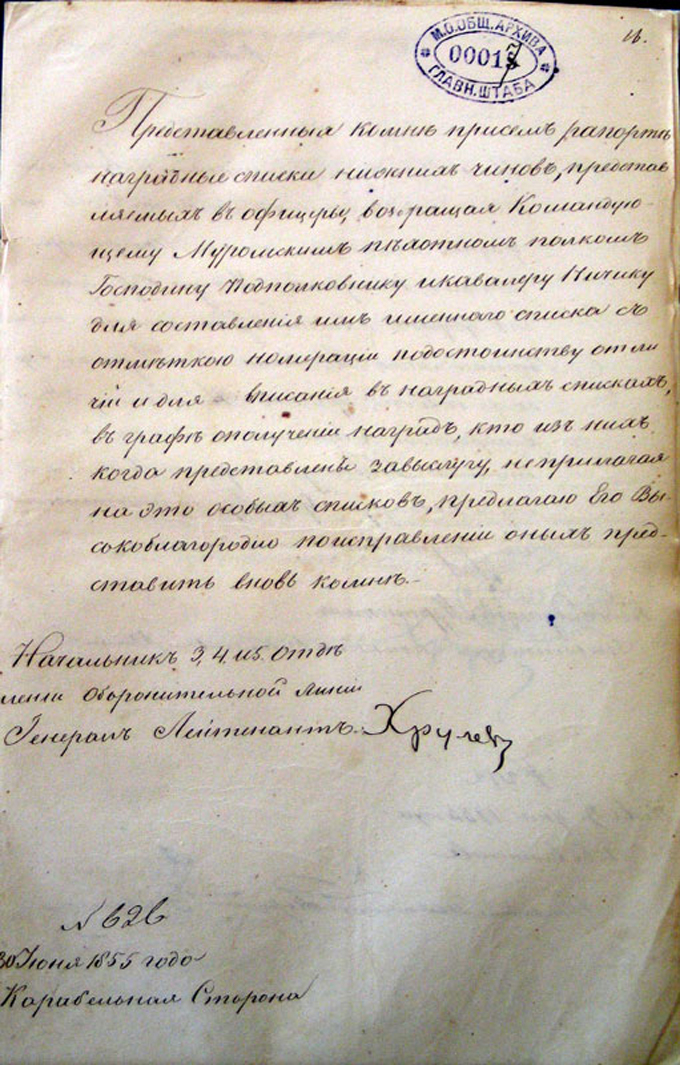 М.О.ОБЩ.АРХИВА
00017
ГЛАВН.ШТАБА
Представленныя комнѣ присемъ рапортѣ
наградные списки нижнихъ чиновъ, представ
ляемыхъ въ офицеры, возвращая Командую-
щему Муромскимъ пѣхотномъ полкомъ
Господину Подполковнику икавалеру Ничику
для составленія имъ именного списка съ
отмѣткою номераціи подостоинству отли
чій и для вписанія въ наградныхъ спискахъ,
въ графѣ ополученіи наградъ, кто изъ нихъ
когда представленъ завыслугу, неприлагая
на это особыхъ списковъ, предлагаю Его Вы-
сокоблагородію поисправленіи оныхъ пред-
ставить вновь комнѣ.-
Начальникъ 3, 4. и 5. Отдѣ
леніи Оборонительной Линіи
Генералъ Лейтенантъ Хрулевъ
№ 626
30 Іюня 1855 года
Карабельная Сторона